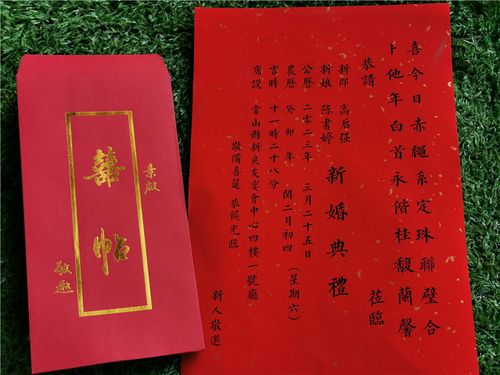 喜今日赤繩系定珠聯璧合
卜他年白首永偕桂馥蘭馨
恭請 莅臨
新婚典禮
新郎 高启强
新娘 陳書婷
公曆 二零二三年 三月二十五日
農曆 癸卯年 閏二月初四（星期六）
吉時 十一時二十八分
席設 常山縣新良友宴會中心四樓一號廳
敬備喜筵 恭候光臨
新人敬邀
亲啟
囍帖
敬邀